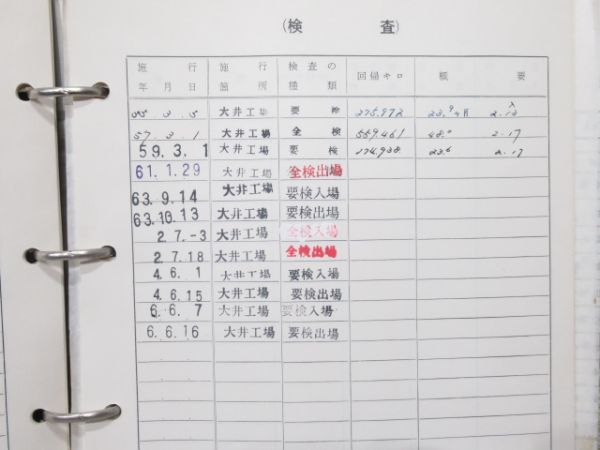 (検 査)
施行年月日 施行箇所 検査の種類 回帰キロ 概要
55. 3. 5 大井工場 要検 275,972
57. 3. 1 大井工場 全検 559,461 48.0 2.17
59. 3. 1 大井工場 要検 174,938 23.6 2.17
61. 1. 29 大井工場 全検出場
63. 9. 14 大井工場 要検入場
63. 10. 13 大井工場 要検出場
2. 7. -3 大井工場 全検入場
2 7. 18 大井工場 全検出場
4. 6. 1 大井工場 要検入場
4. 6. 15 大井工場 要検出場
6. 6. 7 大井工場 要検入場
6. 6. 16 大井工場 要検出場